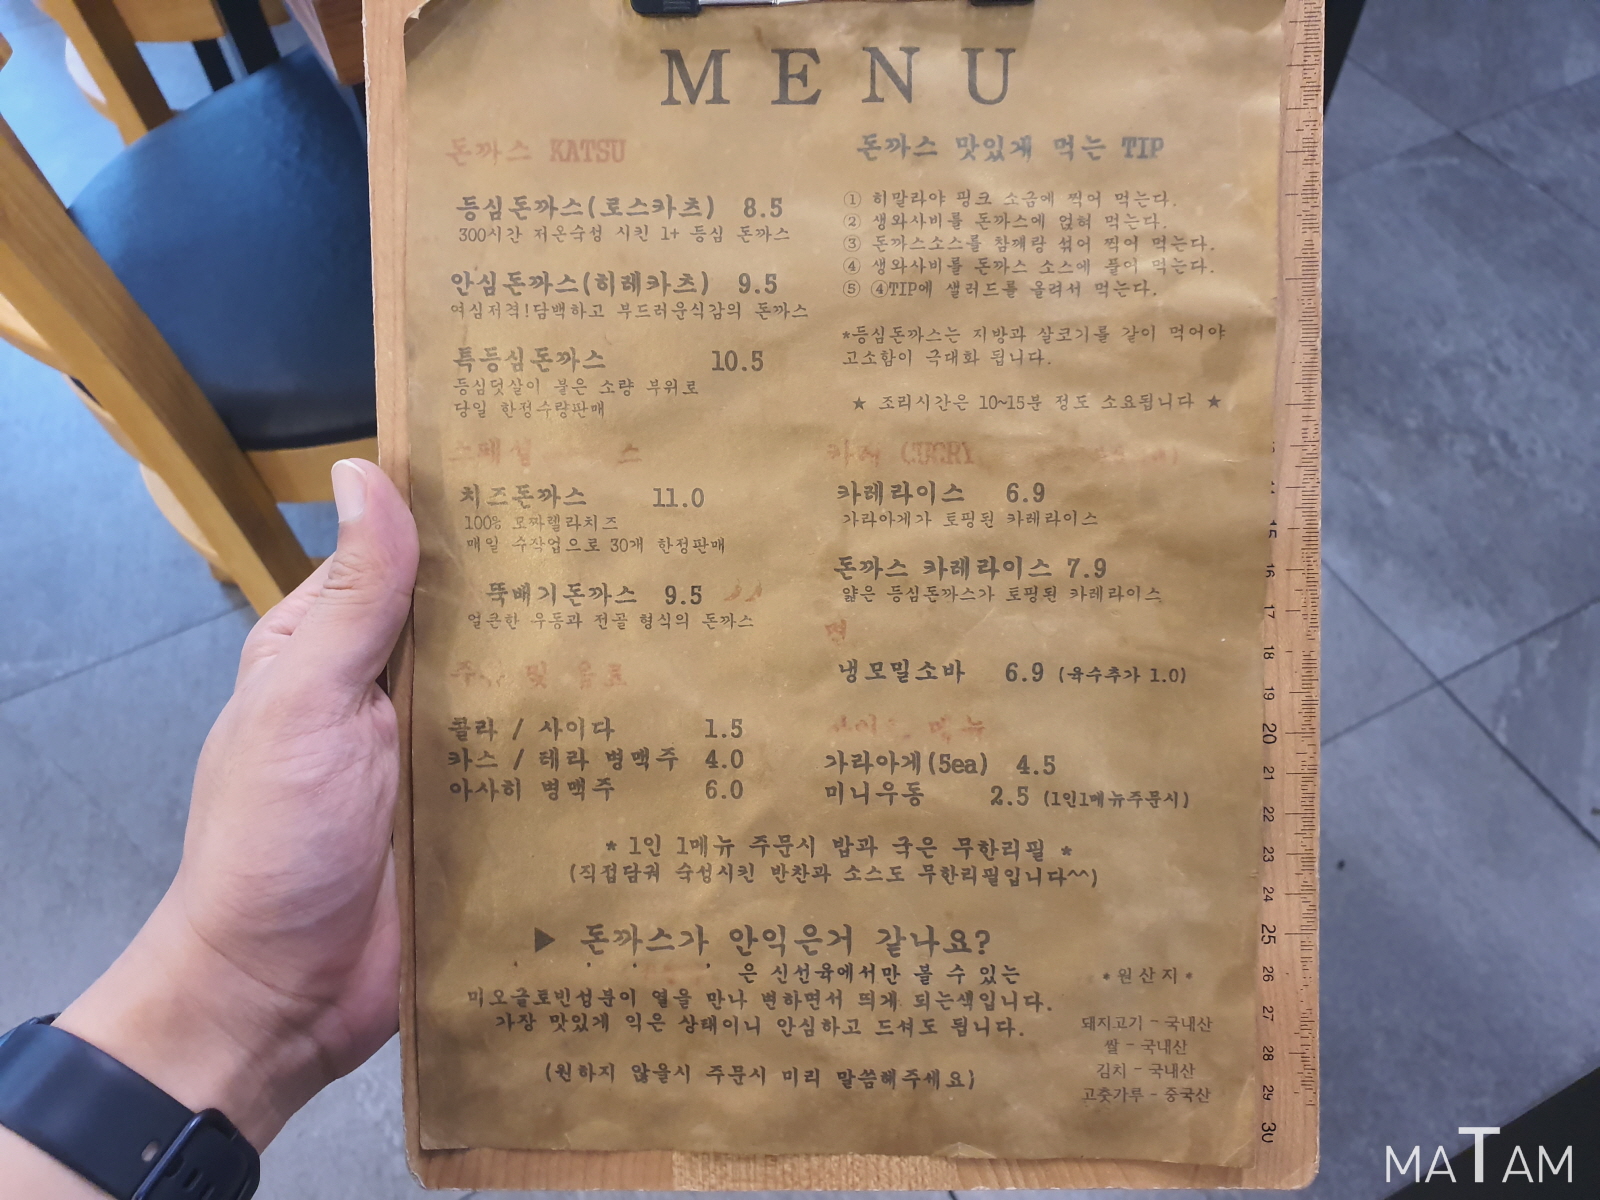 MENU
돈까스 KATSU
등심돈까스(로스카츠) 8.5
300시간 저온숙성 시킨 1+ 등심 돈까스
안심돈까스(히레카츠) 9.5
여심저격!담백하고 부드러운식감의 돈까스
특등심돈까스 10.5
등심덧살이 붙은 소량 부위로
당일 한정수량판매
스페셜 스
치즈돈까스 11.0
100% 모짜렐라치즈
매일 수작업으로 30개 한정판매
뚝배기돈까스 9.5
얼큰한 우동과 전골 형식의 돈까스
콜라 / 사이다 1.5
카스 / 테라 병맥주 4.0
아사히 병맥주 6.0
돈까스 맛있게 먹는 TIP
① 히말라야 핑크 소금에 찍어 먹는다.
② 생와사비를 돈까스에 얹혀 먹는다.
③ 돈까스소스를 참깨랑 섞어 찍어 먹는다.
④ 생와사비를 돈까스 소스에 풀어 먹는다.
⑤ ④TIP에 샐러드를 올려서 먹는다.
*등심돈까스는 지방과 살코기를 같이 먹어야
고소함이 극대화 됩니다.
★ 조리시간은 10~15분 정도 소요됩니다 ★
카레라이스 6.9
가라아게가 토핑된 카레라이스
돈까스 카레라이스 7.9
얇은 등심돈까스가 토핑된 카레라이스
면
냉모밀소바 6.9 (육수추가 1.0)
가라아게(5ea) 4.5
미니우동 2.5 (1인1메뉴주문시)
* 1인 1메뉴 주문시 밥과 국은 무한리필 *
(직접담궈 숙성시킨 반찬과 소스도 무한리필입니다^^)
▶ 돈까스가 안익은거 같나요?
은 신선육에서만 볼 수 있는
미오글로빈성분이 열을 만나 변하면서 띄게 되는색입니다.
가장 맛있게 익은 상태이니 안심하고 드셔도 됩니다.
(원하지 않을시 주문시 미리 말씀해주세요)
*원산지*
돼지고기 - 국내산
쌀 - 국내산
김치 - 국내산
고춧가루 - 중국산
15
16
17
18
19
20
21
22
23
24
25
26
27
28
29
30
MATAM